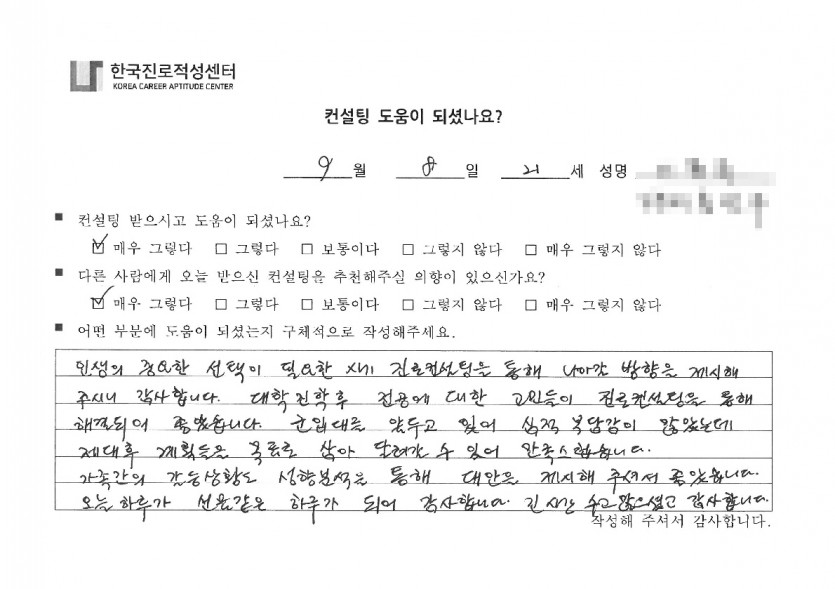 한국진로적성센터
KOREA CAREER APTITUDE CENTER
컨설팅 도움이 되셨나요?
9 월 8 일 21 세 성명
■ 컨설팅 받으시고 도움이 되셨나요?
☑ 매우 그렇다 □ 그렇다 □ 보통이다 □ 그렇지 않다 □ 매우 그렇지 않다
■ 다른 사람에게 오늘 받으신 컨설팅을 추천해주실 의향이 있으신가요?
☑ 매우 그렇다 □ 그렇다 □ 보통이다 □ 그렇지 않다 □ 매우 그렇지 않다
■ 어떤 부분에 도움이 되셨는지 구체적으로 작성해주세요.
인생의 중요한 선택이 필요한 시기 진로컨설팅을 통해 나아갈 방향을 제시해
주시니 감사합니다. 대학진학후 전공에 대한 고민들이 진로컨설팅을 통해
해결되어 좋았습니다. 군입대를 앞두고 있어 심적 부담감이 많았는데
제대후 계획들을 목표로 삼아 달려갈 수 있어 만족스럽습니다.
가족간의 갈등상황도 성향분석을 통해 대안을 제시해 주셔서 좋았습니다.
오늘하루가 선물같은 하루가 되어 감사합니다. 긴시간 수고많으셨고 감사합니다.
작성해 주셔서 감사합니다.